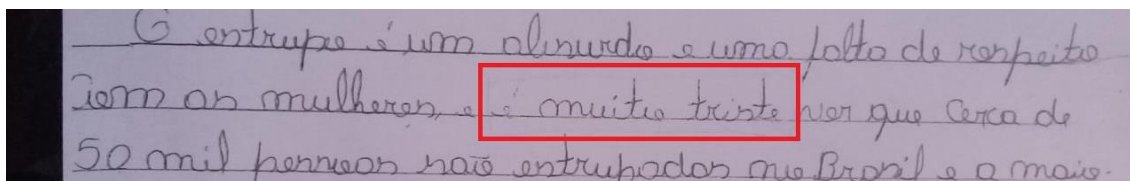 O entrupo é um alsurdo e uma falta de respeito
com as mulheres, e é muito triste ver que cerca de
50 mil pessoas são entrupadas no Brasil e a mais.